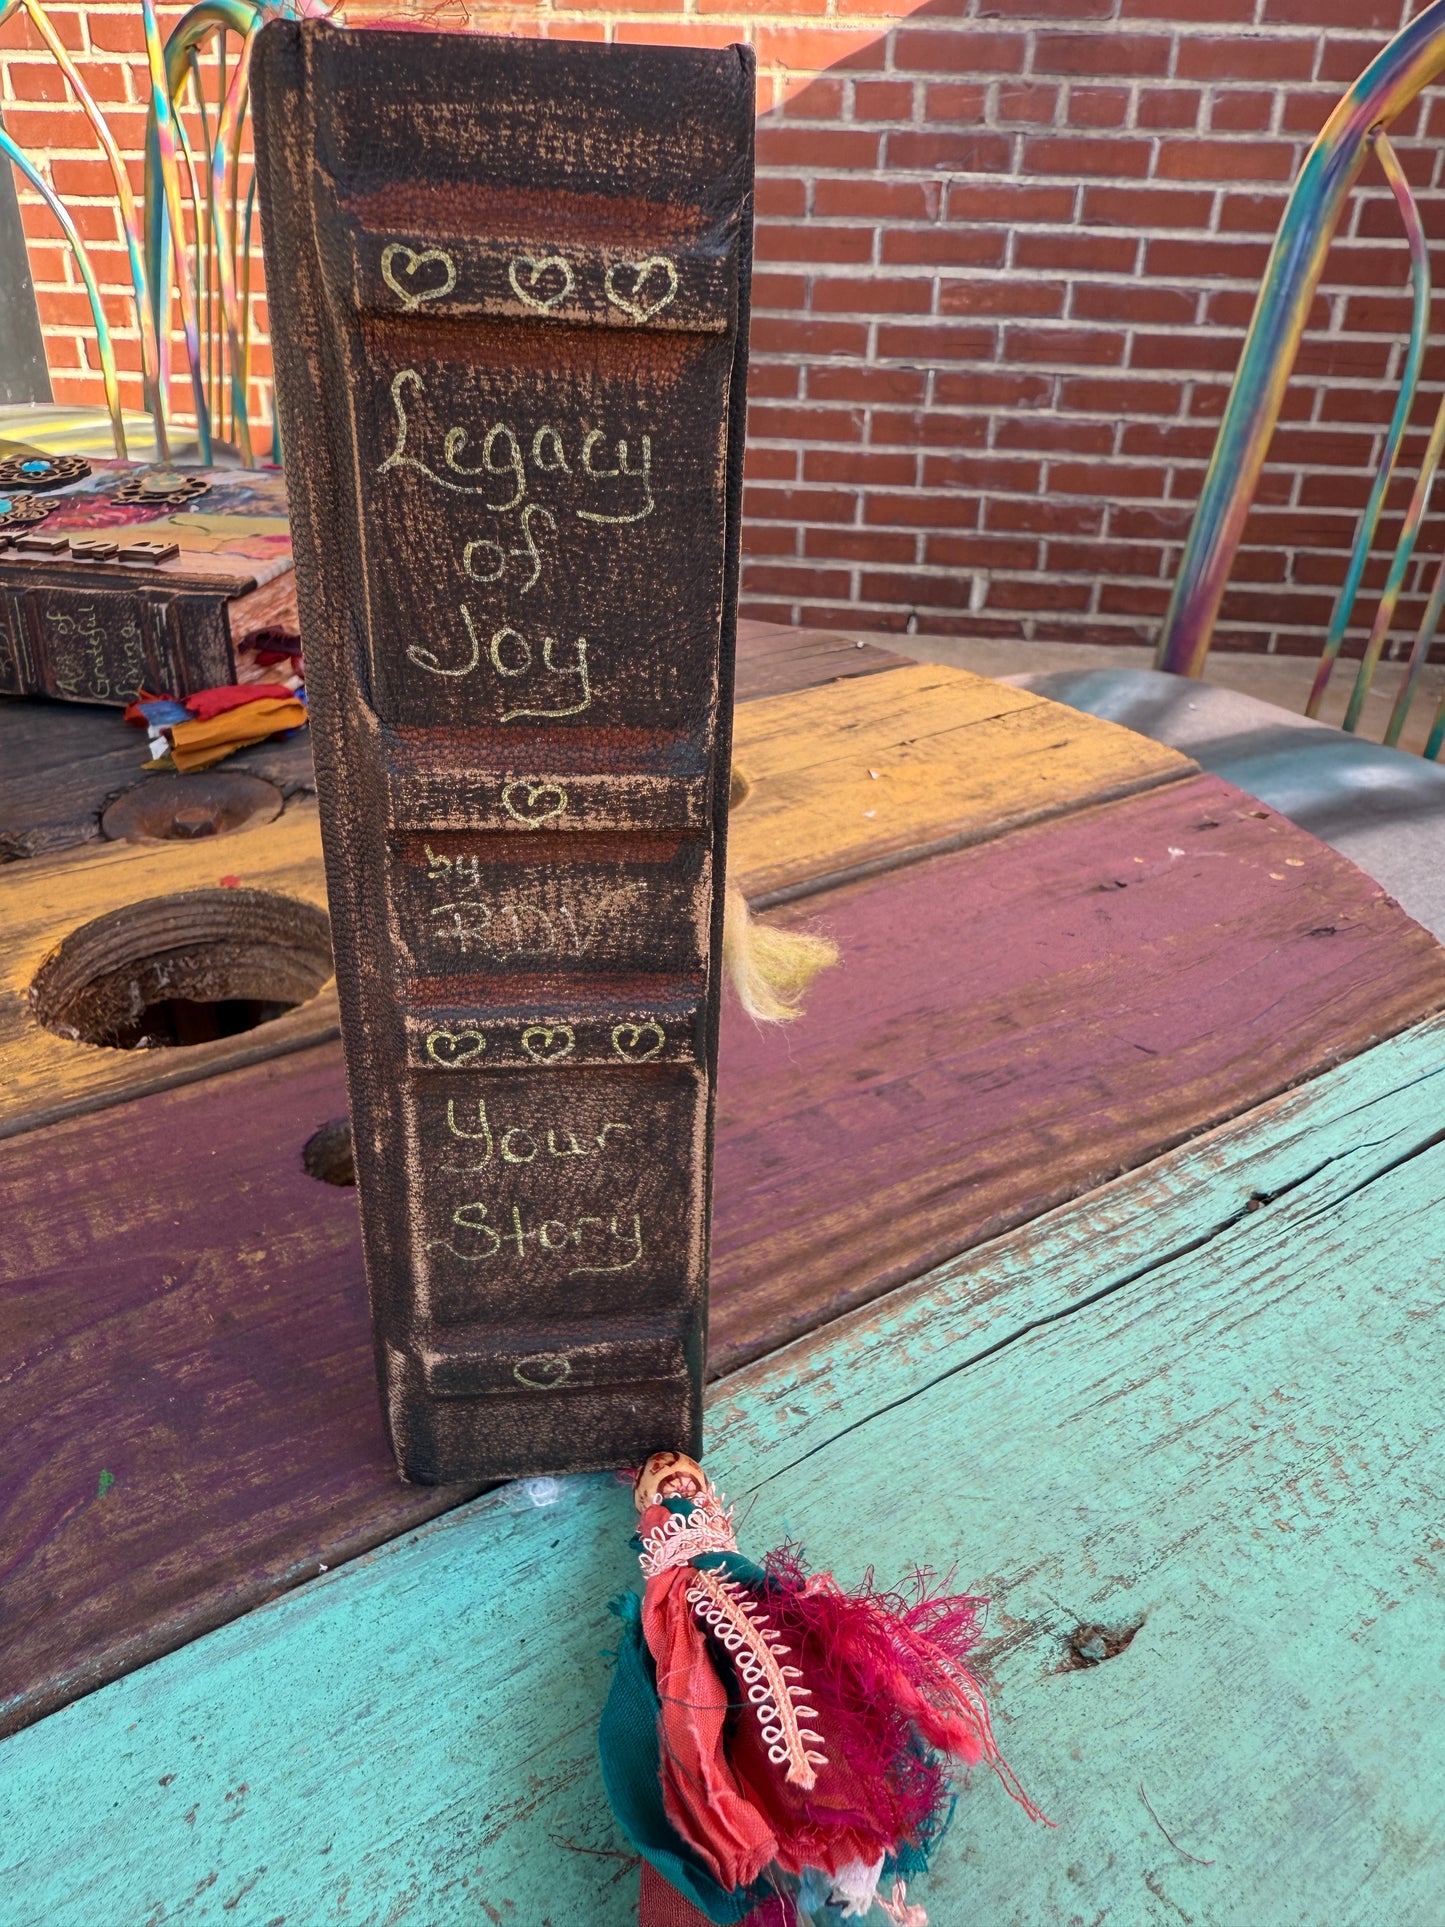 Legacy
of
Joy
by
RDV
Your
Story
of
Grateful
Living